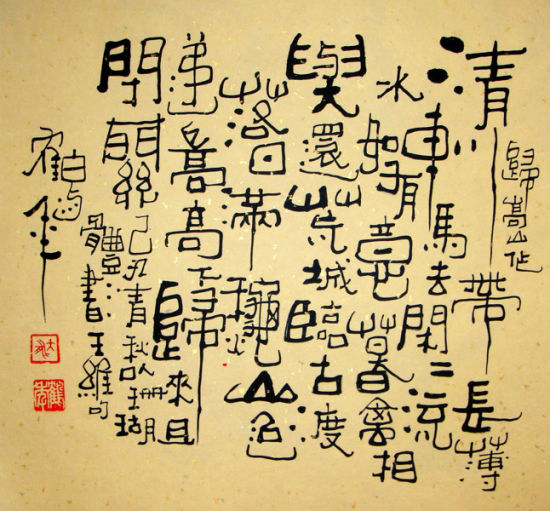 歸嵩山作
清川帶長薄
車馬去閑二流
水如有意暮禽相
與還荒城臨古度
落日滿龝山迢
递嵩高下歸來且
閉關己丑青秋以珊瑚
體書王維句